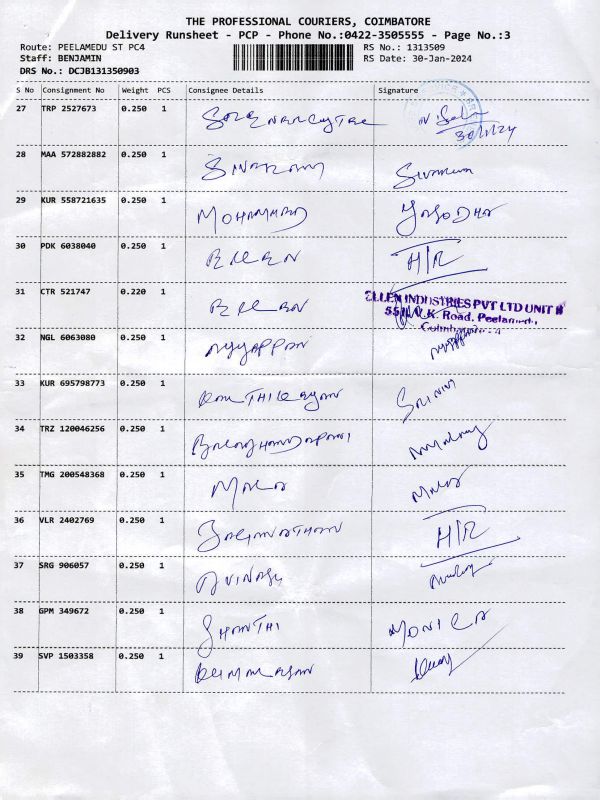 THE PROFESSIONAL COURIERS, COIMBATORE
Delivery Runsheet - PCP - Phone No.:0422-3505555 - Page No.:3
Route: PEELAMEDU ST PC4 RS No.: 1313509
Staff: BENJAMIN RS Date: 30-Jan-2024
DRS No.: DCJB131350903
S No Consignment No Weight PCS Consignee Details Signature
27 TRP 2527673 0.250 1
30/1/24
28 MAA 572882882 0.250 1 SIVARAM
29 KUR 558721635 0.250 1 MOHAMMAD YASODHA
30 PDK 6038040 0.250 1 ELLEN H/R
31 CTR 521747 0.220 1 ELLEN
ELLEN INDUSTRIES PVT LTD UNIT II
K. Road, Peelamedu,
Coimbatore - 4
32 NGL 6063080 0.250 1 AYYAPPAN
33 KUR 695798773 0.250 1 KARTHIKEYAN
34 TRZ 120046256 0.250 1
35 TMG 200548368 0.250 1 MALA
36 VLR 2402769 0.250 1 JAGANATHAN H/R
37 SRG 906057 0.250 1 AVINASH
38 GPM 349672 0.250 1 SHANTHI MONICA
39 SVP 1503358 0.250 1